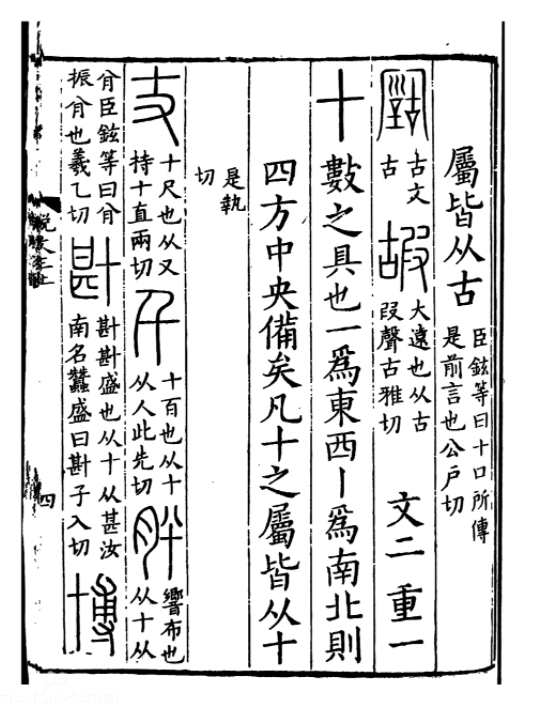 屬皆从古
臣鉉等曰十口所傳
是前言也公戶切
古文
古
嘏
大遠也从古
叚聲古雅切
文二 重一
十 數之具也一爲東西丨爲南北則
四方中央備矣凡十之屬皆从十
是執
切
丈
十尺也从又
持十直兩切
千
十百也从十
从人此先切
肸
響布也
从十从
𦙝臣鉉等曰𦙝
振𦙝也羲乙切
卙
卙卙盛也从十从甚汝
南名蠶盛曰卙子入切
博
說文三上
四